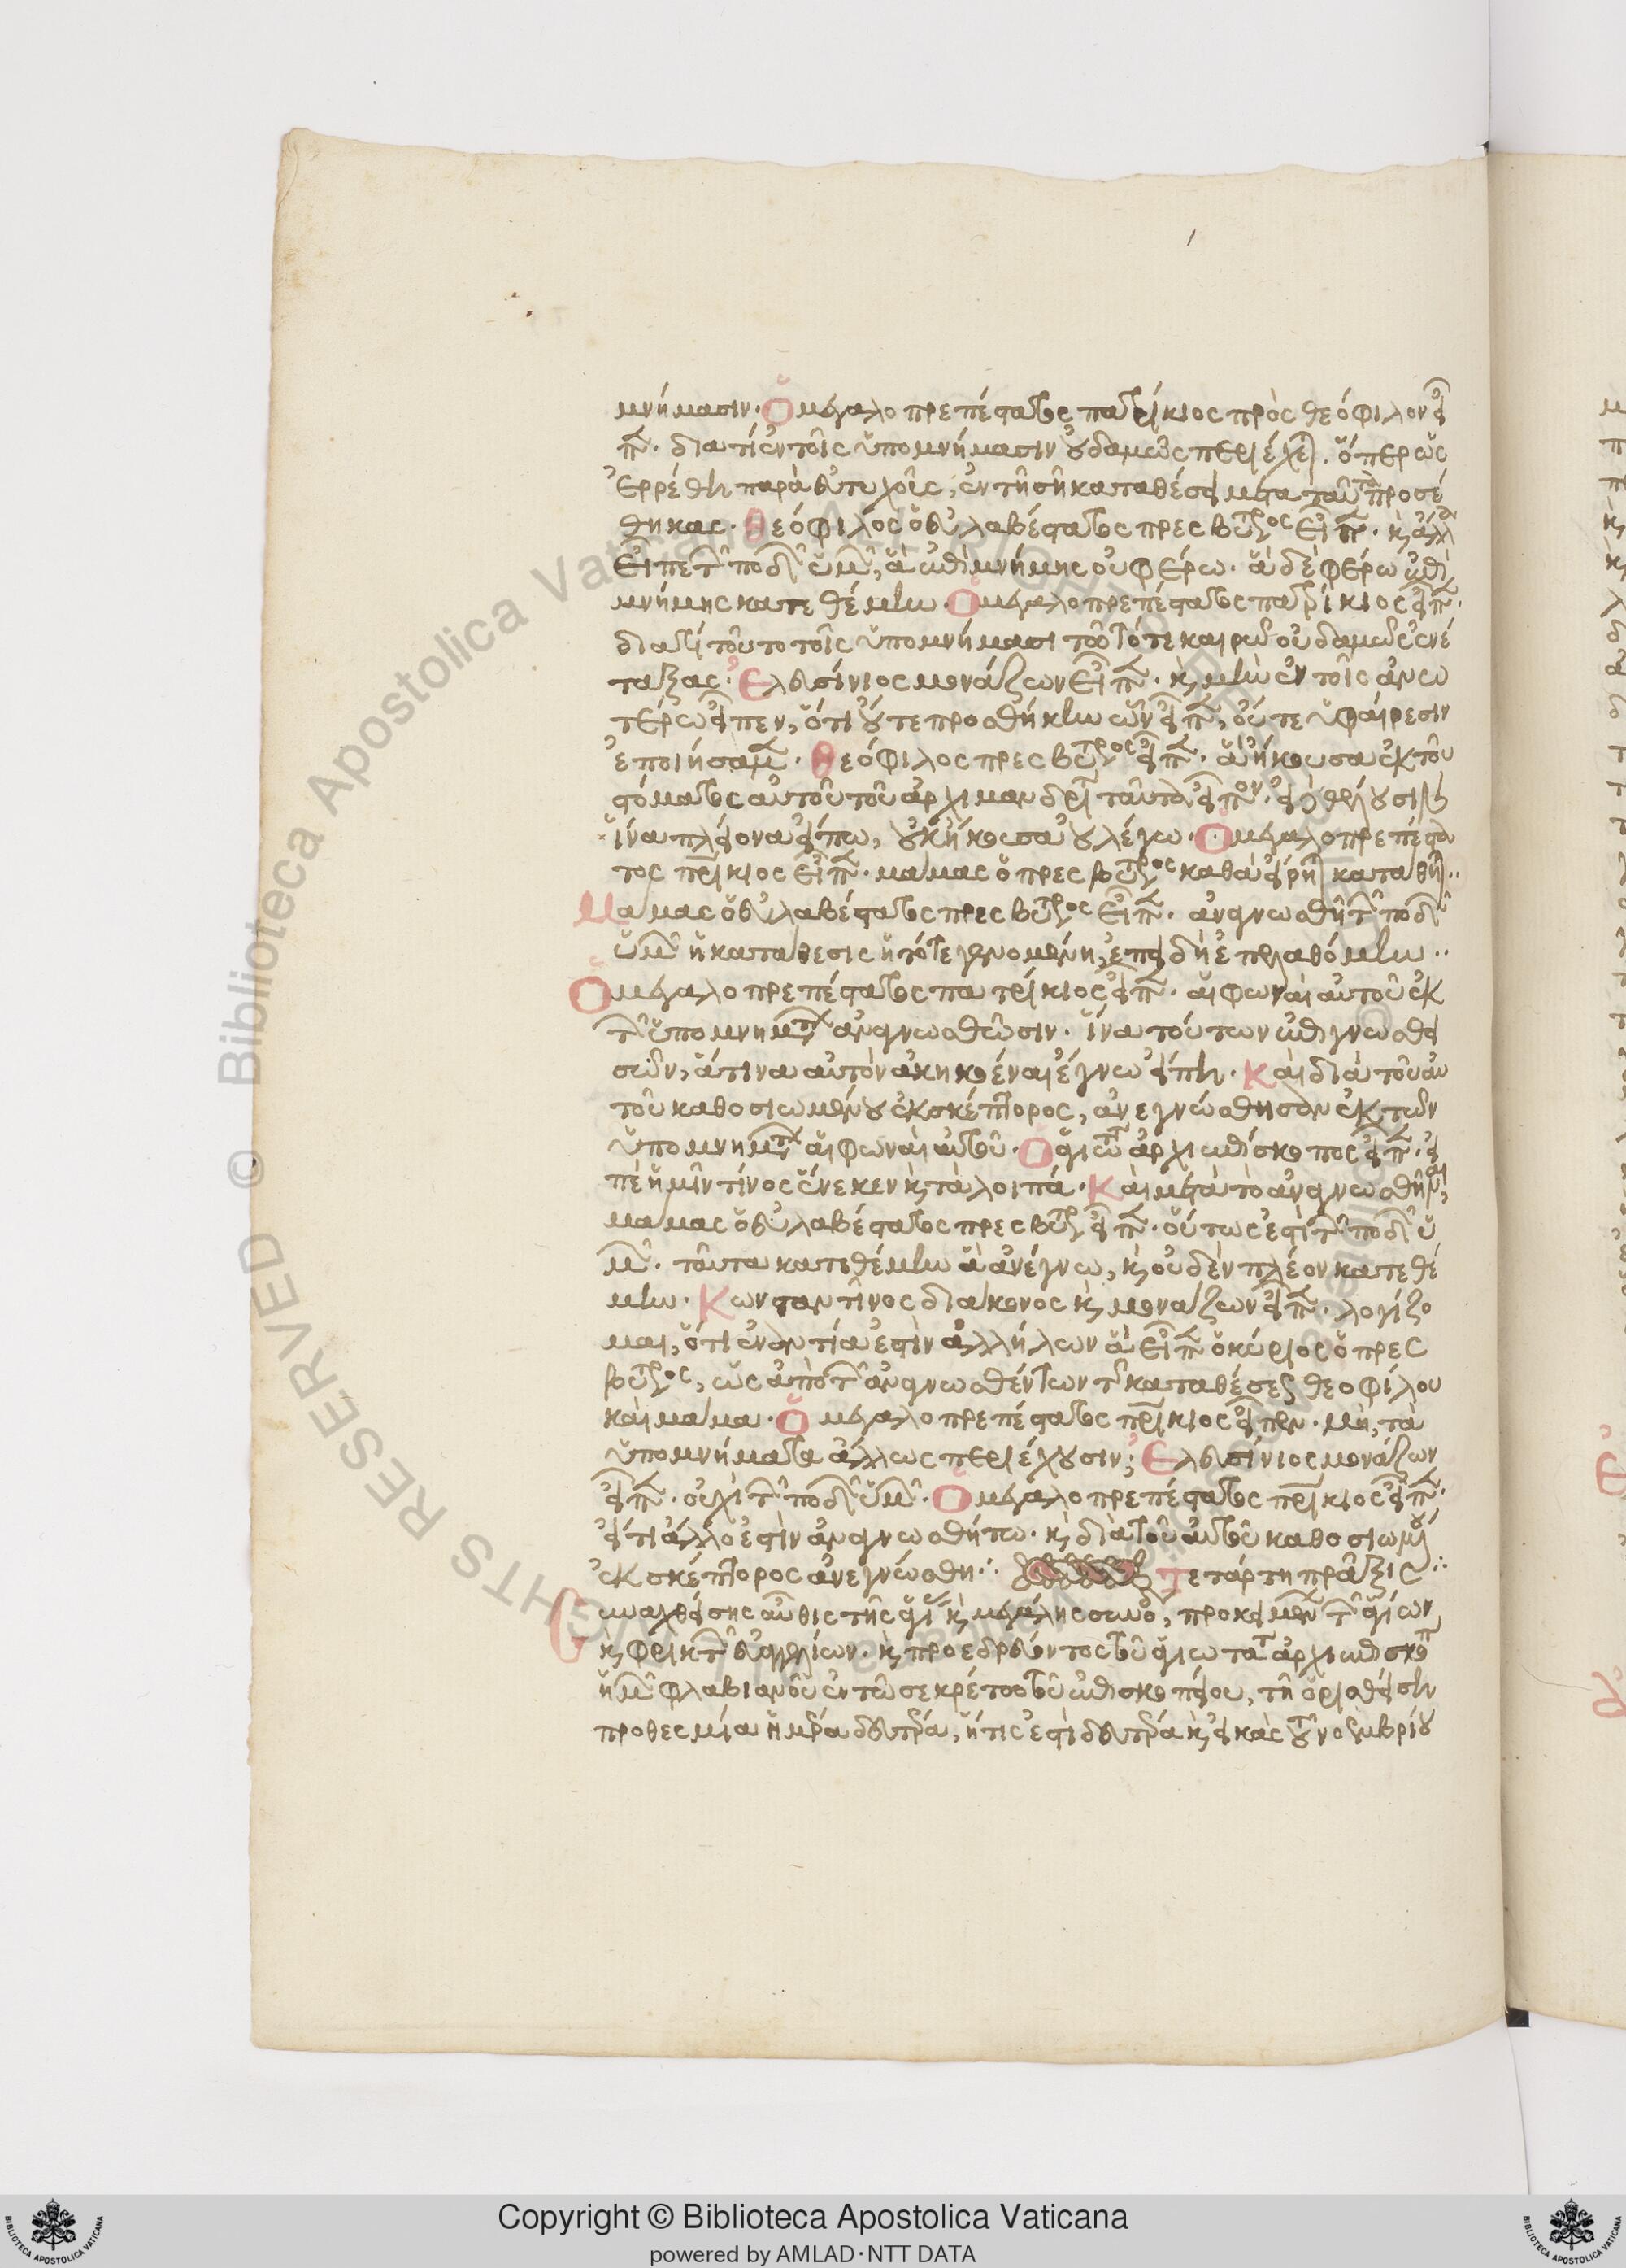 μνήμασιν· Ὁ μεγαλοπρεπέστατος πατρίκιος πρὸς θεόφιλον εἶ
π̅· διατί ἐν τοῖς ὑπομνήμασιν οὐδαμῶς περιέχει. ὅπερ ὡς
ἐρρέθη παρὰ εὐτυχοῦς, ἐν τῇ σῇ καταθέσει μετὰ ταῦτα προσέ
θηκας· Θεόφιλος ὁ εὐλαβέστατος πρεσβύτερος εἶπ̅· κ̀ ἄλλα
εἶπε τ̅ ποδ̅ ὑμ̅, ἃ ἐπὶ μνήμης οὐ φέρω· ἃ δὲ φέρω ἐπὶ
μνήμης κατεθέμην· Ὁ μεγαλοπρεπέστατος πατρίκιος εἶπ̅·
διατί τοῦτο τοῖς ὑπομνήμασι τῶ τότε καιρῶ οὐδαμῶς ἐνέ
ταξας· Ἐλευσίνιος μονάζων εἶπ̅· κ̀ μὴν ἐν τοῖς ἀνω
τέρω εἶπεν, ὅτι οὔτε προσθήκην ὧν εἶπ̅, οὔτε ὑφαίρεσιν
ἐποιησάμ̅· Θεόφιλος πρεσβύτερος εἶπ̅· ἃ ἤκουσα ἐκ τοῦ
στόματος αὐτοῦ τοῦ ἀρχιμανδρί ταῦτα εἶπον· εἰ θέλουσιν
ἵνα πλείονα εἴπω, οὐκ ἤκουσα οὐ λέγω· Ὁ μεγαλοπρεπέστα
τος πρ̅ίκιος εἶπ̅· μάμας ὁ πρεσβύτερος καθὰ εἴρη καταθη··
Μάμας ὁ εὐλαβέστατος πρεσβύτερος εἶπ̅· ἀναγνωσθῆ τ̅ ποδ̅
ὑμ̅ ἡ κατάθεσις ἡ τότε γενομένη, ἐπειδὴ ἐπελαθόμην··
Ὁ μεγαλοπρεπέστατος πατρίκιος εἶπ̅· αἱ φωναὶ αὐτοῦ ἐκ
τ̅ ὑπομνημτ̅ ἀναγνωσθῶσιν· ἵνα τούτων ἐπιγνωσθει
σῶν, ἅτινα αὐτὸν ἀκηκοέναι ἔγνω εἴπη· Καὶ διὰ τοῦ αὐ
τοῦ καθοσιωμένου ἐκσκέπτορος, ἀνεγνώσθησαν ἐκ τῶν
ὑπομνημτ̅ αἱ φωναὶ αὐτοῦ· Ὁ ἁγιώτ ἀρχιεπίσκοπος εἶπ̅· εἰ
πὲ ἡμῖν τίνος ἕνεκεν κ̀ τὰ λοιπά· Καὶ μετὰ τὸ ἀναγνωσθῆναι,
μάμας ὁ εὐλαβέστατος πρεσβύτ εἶπ̅· οὕτως ἐστὶ τ̅ ποδ̅ ὑ
μ̅· ταῦτα κατεθέμην ἃ ἀνέγνω, κ̀ οὐδὲν πλέον κατεθέ
μην· Κωνσταντῖνος διάκονος κ̀ μονάζων εἶπ̅· λογίζο
μαι, ὅτι ἐναντία ἐστὶν ἀλλήλων ἃ εἶπ̅ ὁ κύριος ὁ πρεσ
βύτερος, ὡς ἀπὸ τ̅ ἀναγνωσθέντων τ̅ καταθέσεως θεοφίλου
καὶ μάμα· Ὁ μεγαλοπρεπέστατος πρ̅ίκιος εἶπεν· μὴ, τὰ
ὑπομνήματα ἄλλως περιέχουσιν; Ἐλευσίνιος μονάζων
εἶπ̅· οὐχὶ τ̅ ποδ̅ ὑμ̅· Ὁ μεγαλοπρεπέστατος πρ̅ίκιος εἶπ̅·
εἴ τι ἄλλο ἐστὶν ἀναγνωσθήτω· κ̀ διὰ τοῦ αὐτοῦ καθοσιωμένου
ἐκσκέπτορος ἀνεγνώσθη·: Τετάρτη πρᾶξις·:
Συναχθείσης αὖθις τῆς ἁγί κ̀ μεγάλης συνό, προκειμένων τ̅ ἁγίων
κ̀ φρικτ̅ εὐαγγελίων· κ̀ προεδρεύοντος τοῦ ἁγιωτάτ ἀρχιεπισκόπ
ἡμ̅ φλαβιανοῦ ἐν τῶ σεκρέτω τοῦ ἐπισκοπείου, τῇ ὁρισθείση
προθεσμία ἡμέρα δευτέρα, ἥτις ἐστὶ δευτέρα κ̀ εἰκὰς τοῦ νοεμβρίου